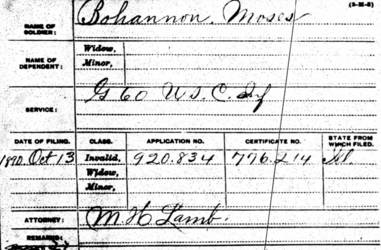 (3-M-S)
NAME OF SOLDIER: Bohannon, Moses
NAME OF DEPENDENT: Widow,
Minor,
SERVICE: G 60 U.S.C. Inf
DATE OF FILING. CLASS. APPLICATION NO. CERTIFICATE NO. STATE FROM WHICH FILED.
1890 Oct 13 Invalid, 920.834 776.214
Widow,
Minor,
ATTORNEY: M. H. Lamb.
REMARKS: